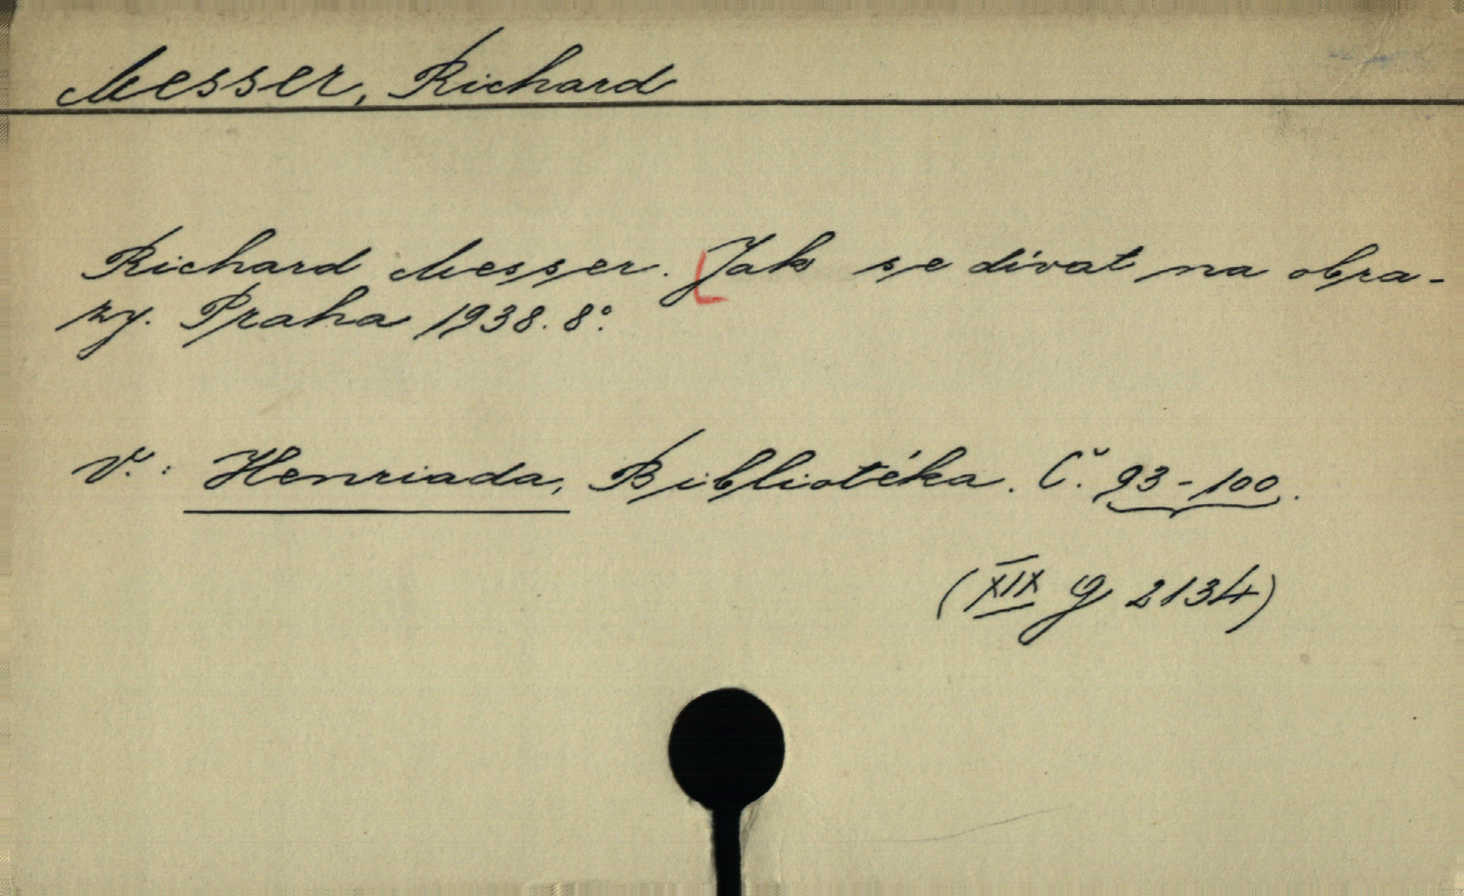 Messer, Richard
Richard Messer. Jak se dívat na obra-
zy. Praha 1938. 8°.
V.: Henriada, Bibliotéka. Č. 93-100.
(XIX G 2134)